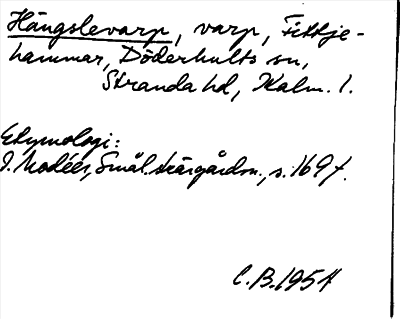 Hängslevarp, varp, Fittje-
hammar, Döderhults sn,
Stranda hd, Kalm. l.
Etymologi:
I. Modéer, Smål. skärgårdsn., s. 169 f.
C.B. 1954